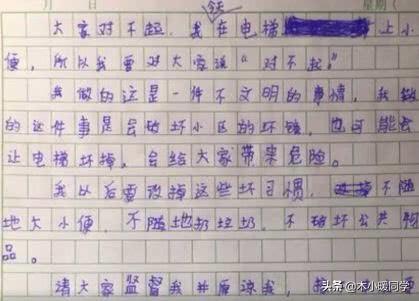 月 日 星期(
今天
大家对不起。我在电梯 上小
便，所以我要对大家说“对不起。”
我做的这是一件不文明的事情，我做
的这件事是会破坏小区的环境，也可能会
让电梯坏掉，会给大家带来危险。
我以后要改掉这些坏习惯，不随
地大小便，不随地扔垃圾，不破坏公共物
品。
请大家监督我并原谅我，
头条 @木小暖同学